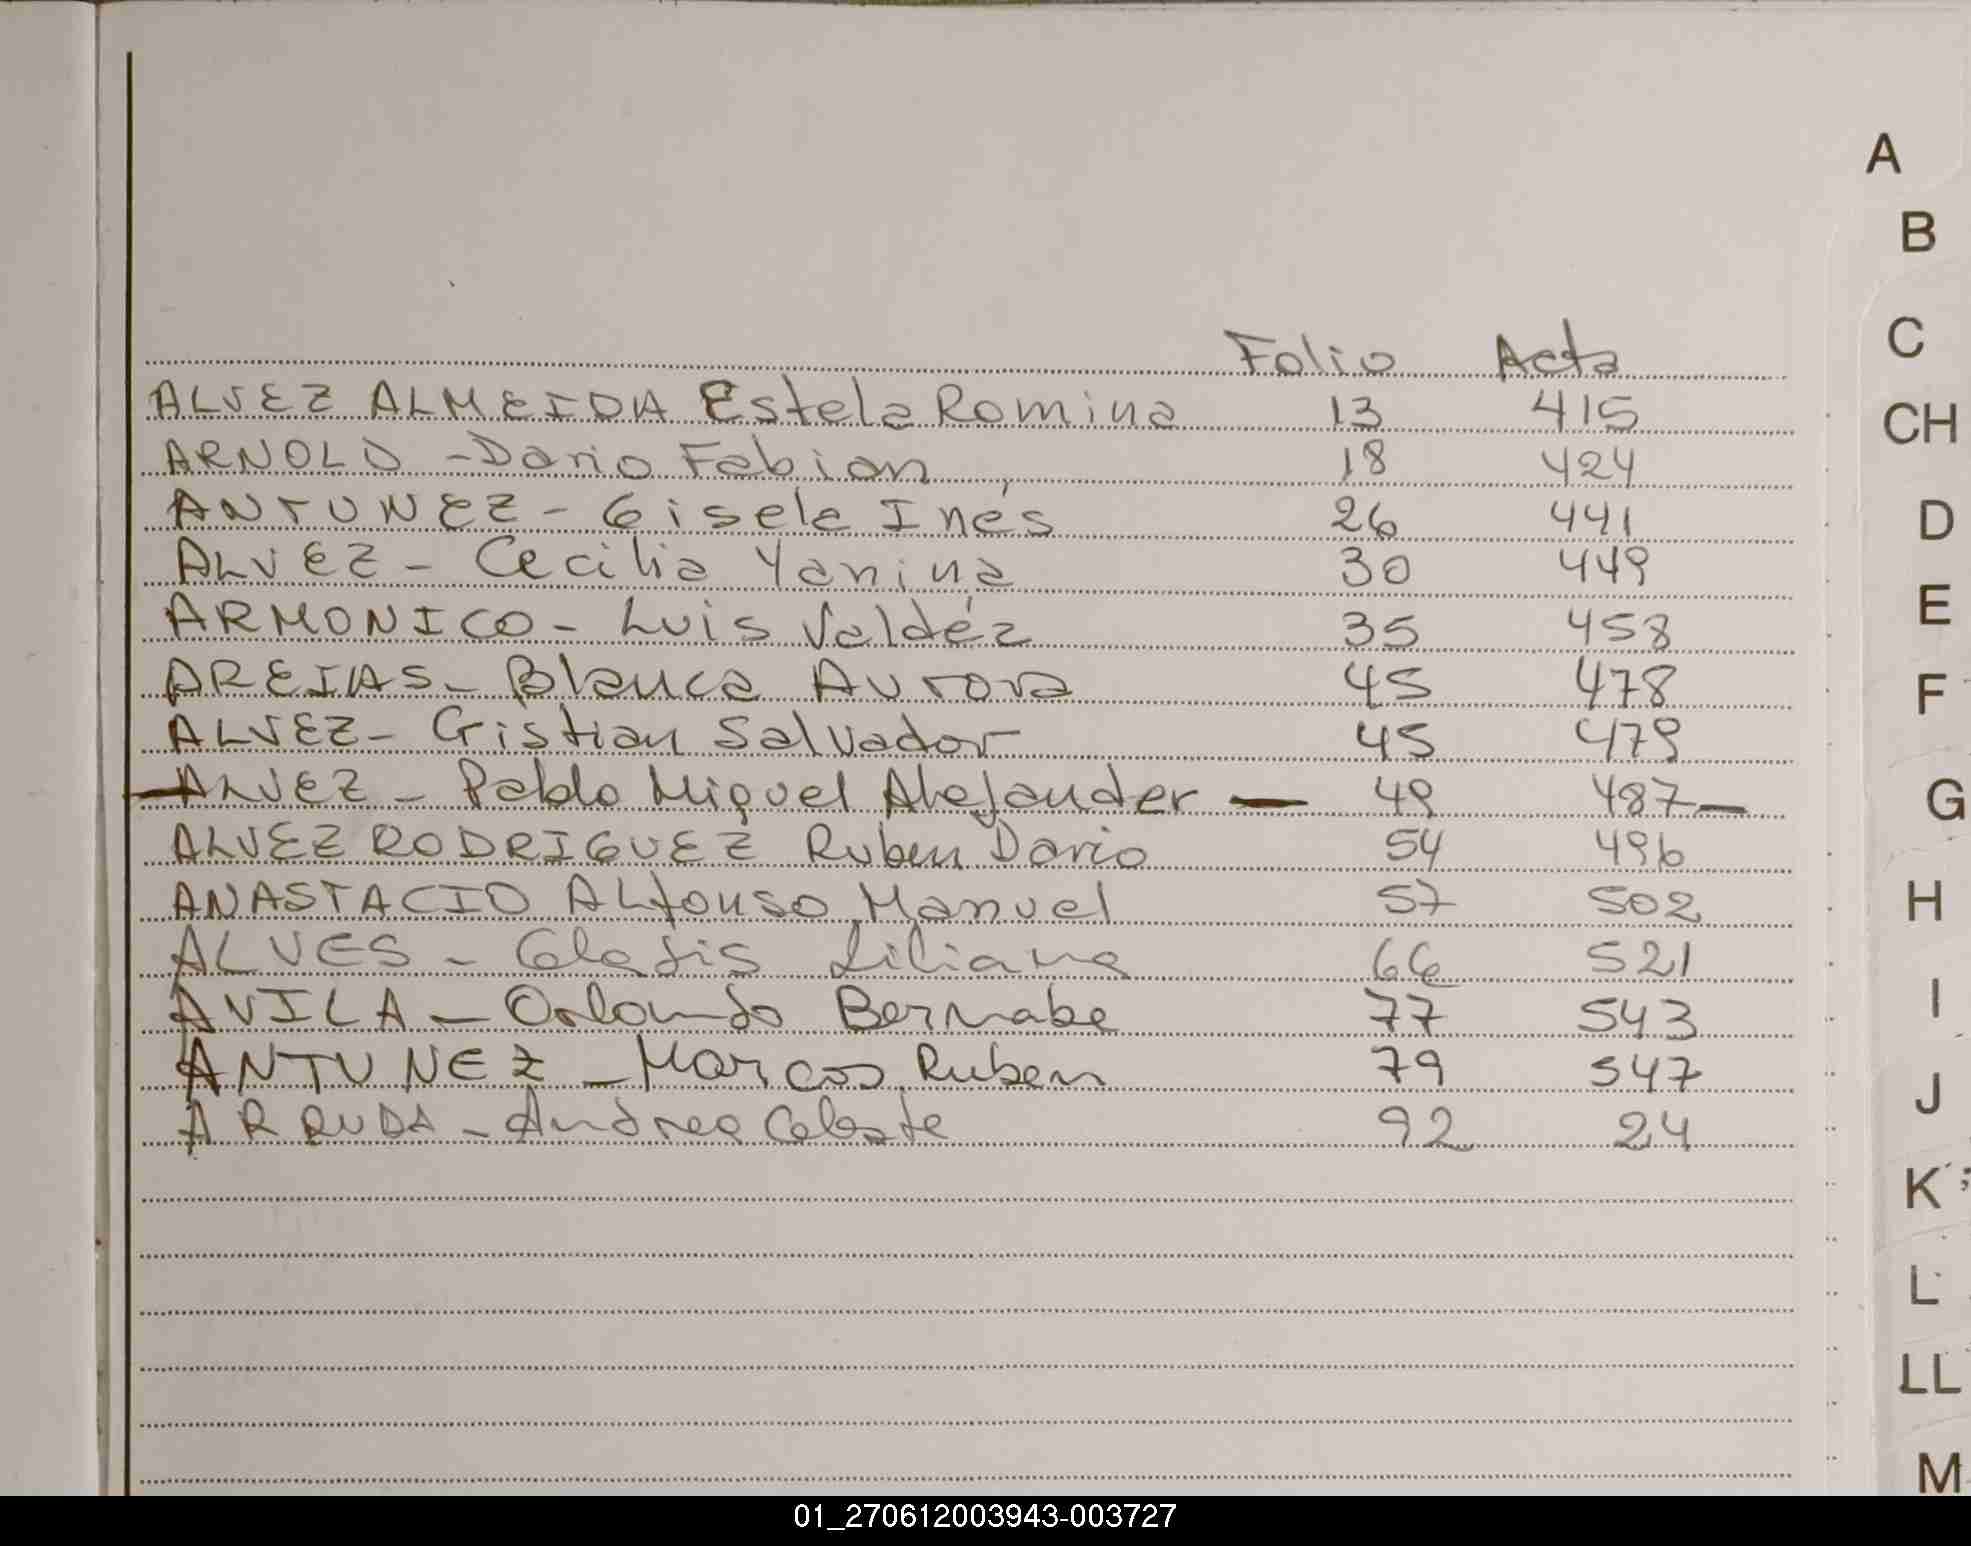 Folio Acta
ALVEZ ALMEIDA Estela Romina 13 415
ARNOLD - Dario Fabian 18 424
ANTUNEZ - Gisela Inés 26 441
ALVEZ - Cecilia Yanina 30 449
ARMONICO - Luis Valdéz 35 458
AREIAS - Blanca Aurora 45 478
ALVEZ - Cristian Salvador 45 479
ALVEZ - Pablo Miguel Alejander - 49 487 -
ALVEZ RODRIGUEZ Ruben Dario 54 496
ANASTACIO ALfonso Manuel 57 502
ALVES - Gladis Liliana 66 521
AVILA - Orlando Bernabe 77 543
ANTUNEZ - Marcos Ruben 79 547
ARRUDA - Andrea Celeste 92 24
A
B
C
CH
D
E
F
G
H
I
J
K
L
LL
M
01_270612003943-003727